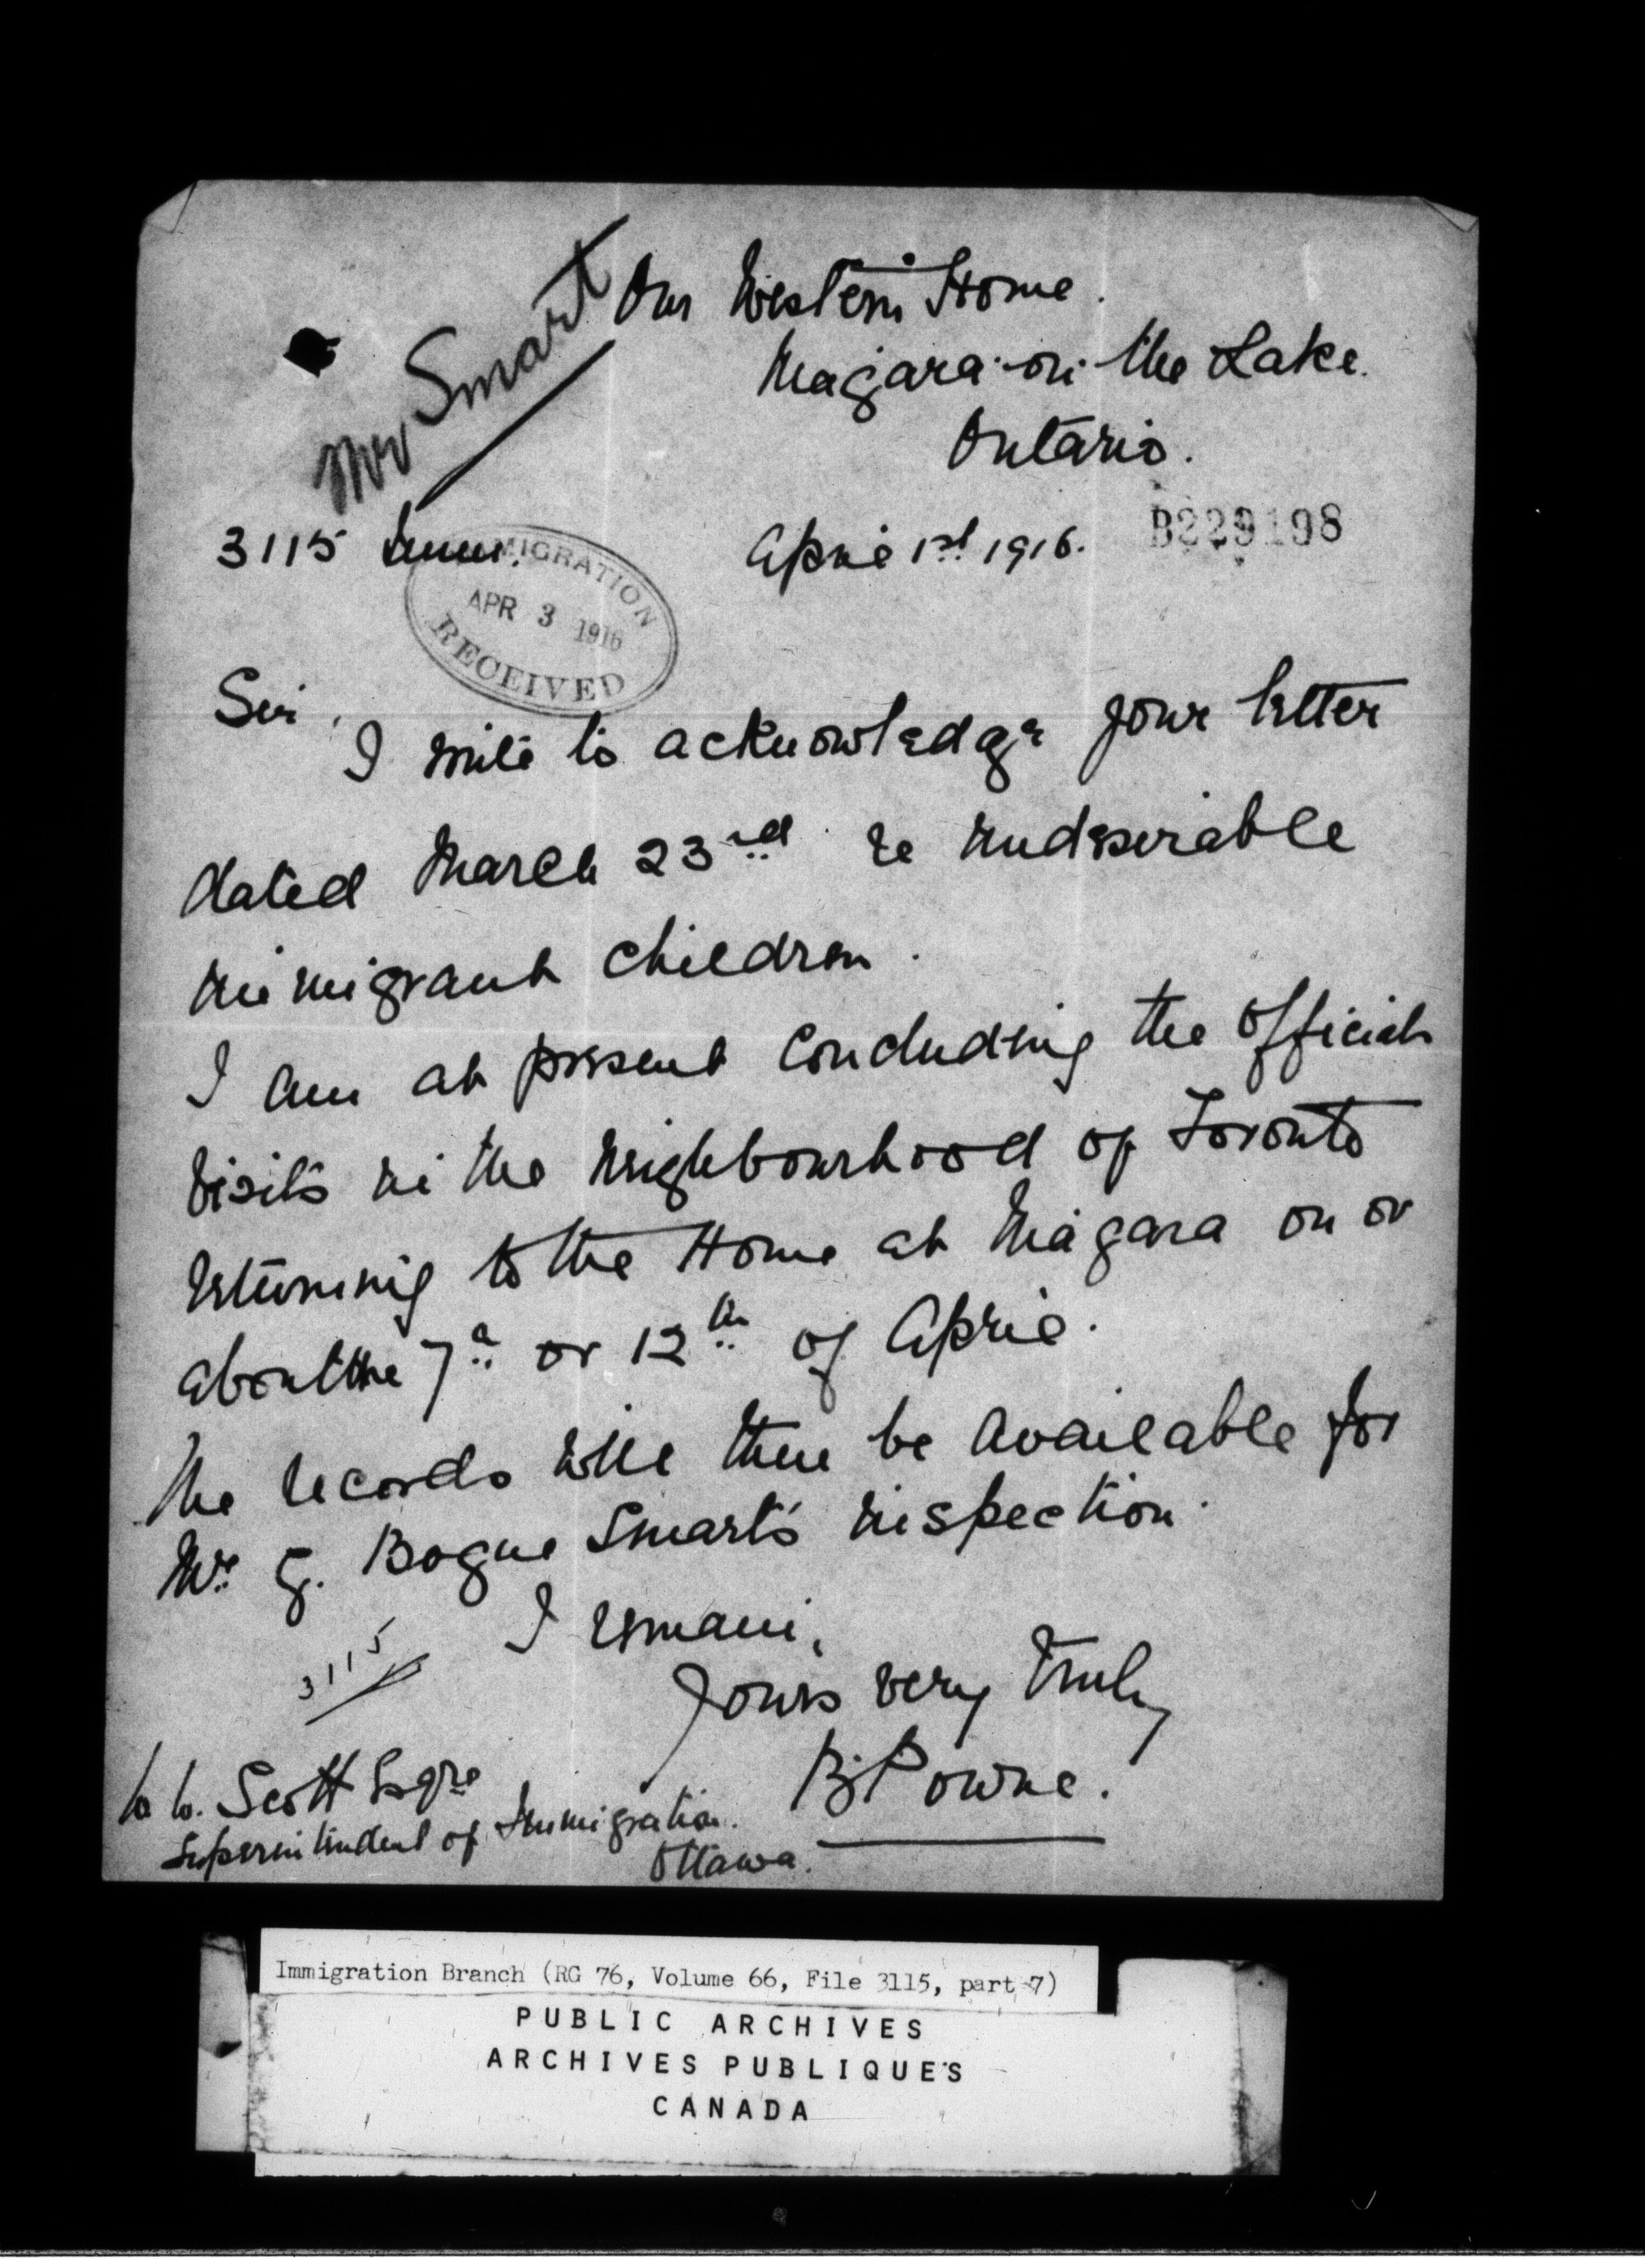 Mr Smart
Our Western Home.
Niagara-on-the Lake.
Ontario.
B229198
3115 Imm.
April 1st 1916.
IMMIGRATION
APR 3 1916
RECEIVED
Sir,
I write to acknowledge your letter
dated March 23rd re undesirable
immigrant children.
I am at present concluding the official
visits in the neighbourhood of Toronto
returning to the Home at Niagara on or
about the 7th or 12th of April.
The records will then be available for
Mr. G. Bogue Smart's inspection.
I remain,
Yours very truly
B. Powne.
3115
W. W. Scott Esqre
Superintendent of Immigration.
Ottawa.
Immigration Branch (RG 76, Volume 66, File 3115, part 7)
PUBLIC ARCHIVES
ARCHIVES PUBLIQUES
CANADA